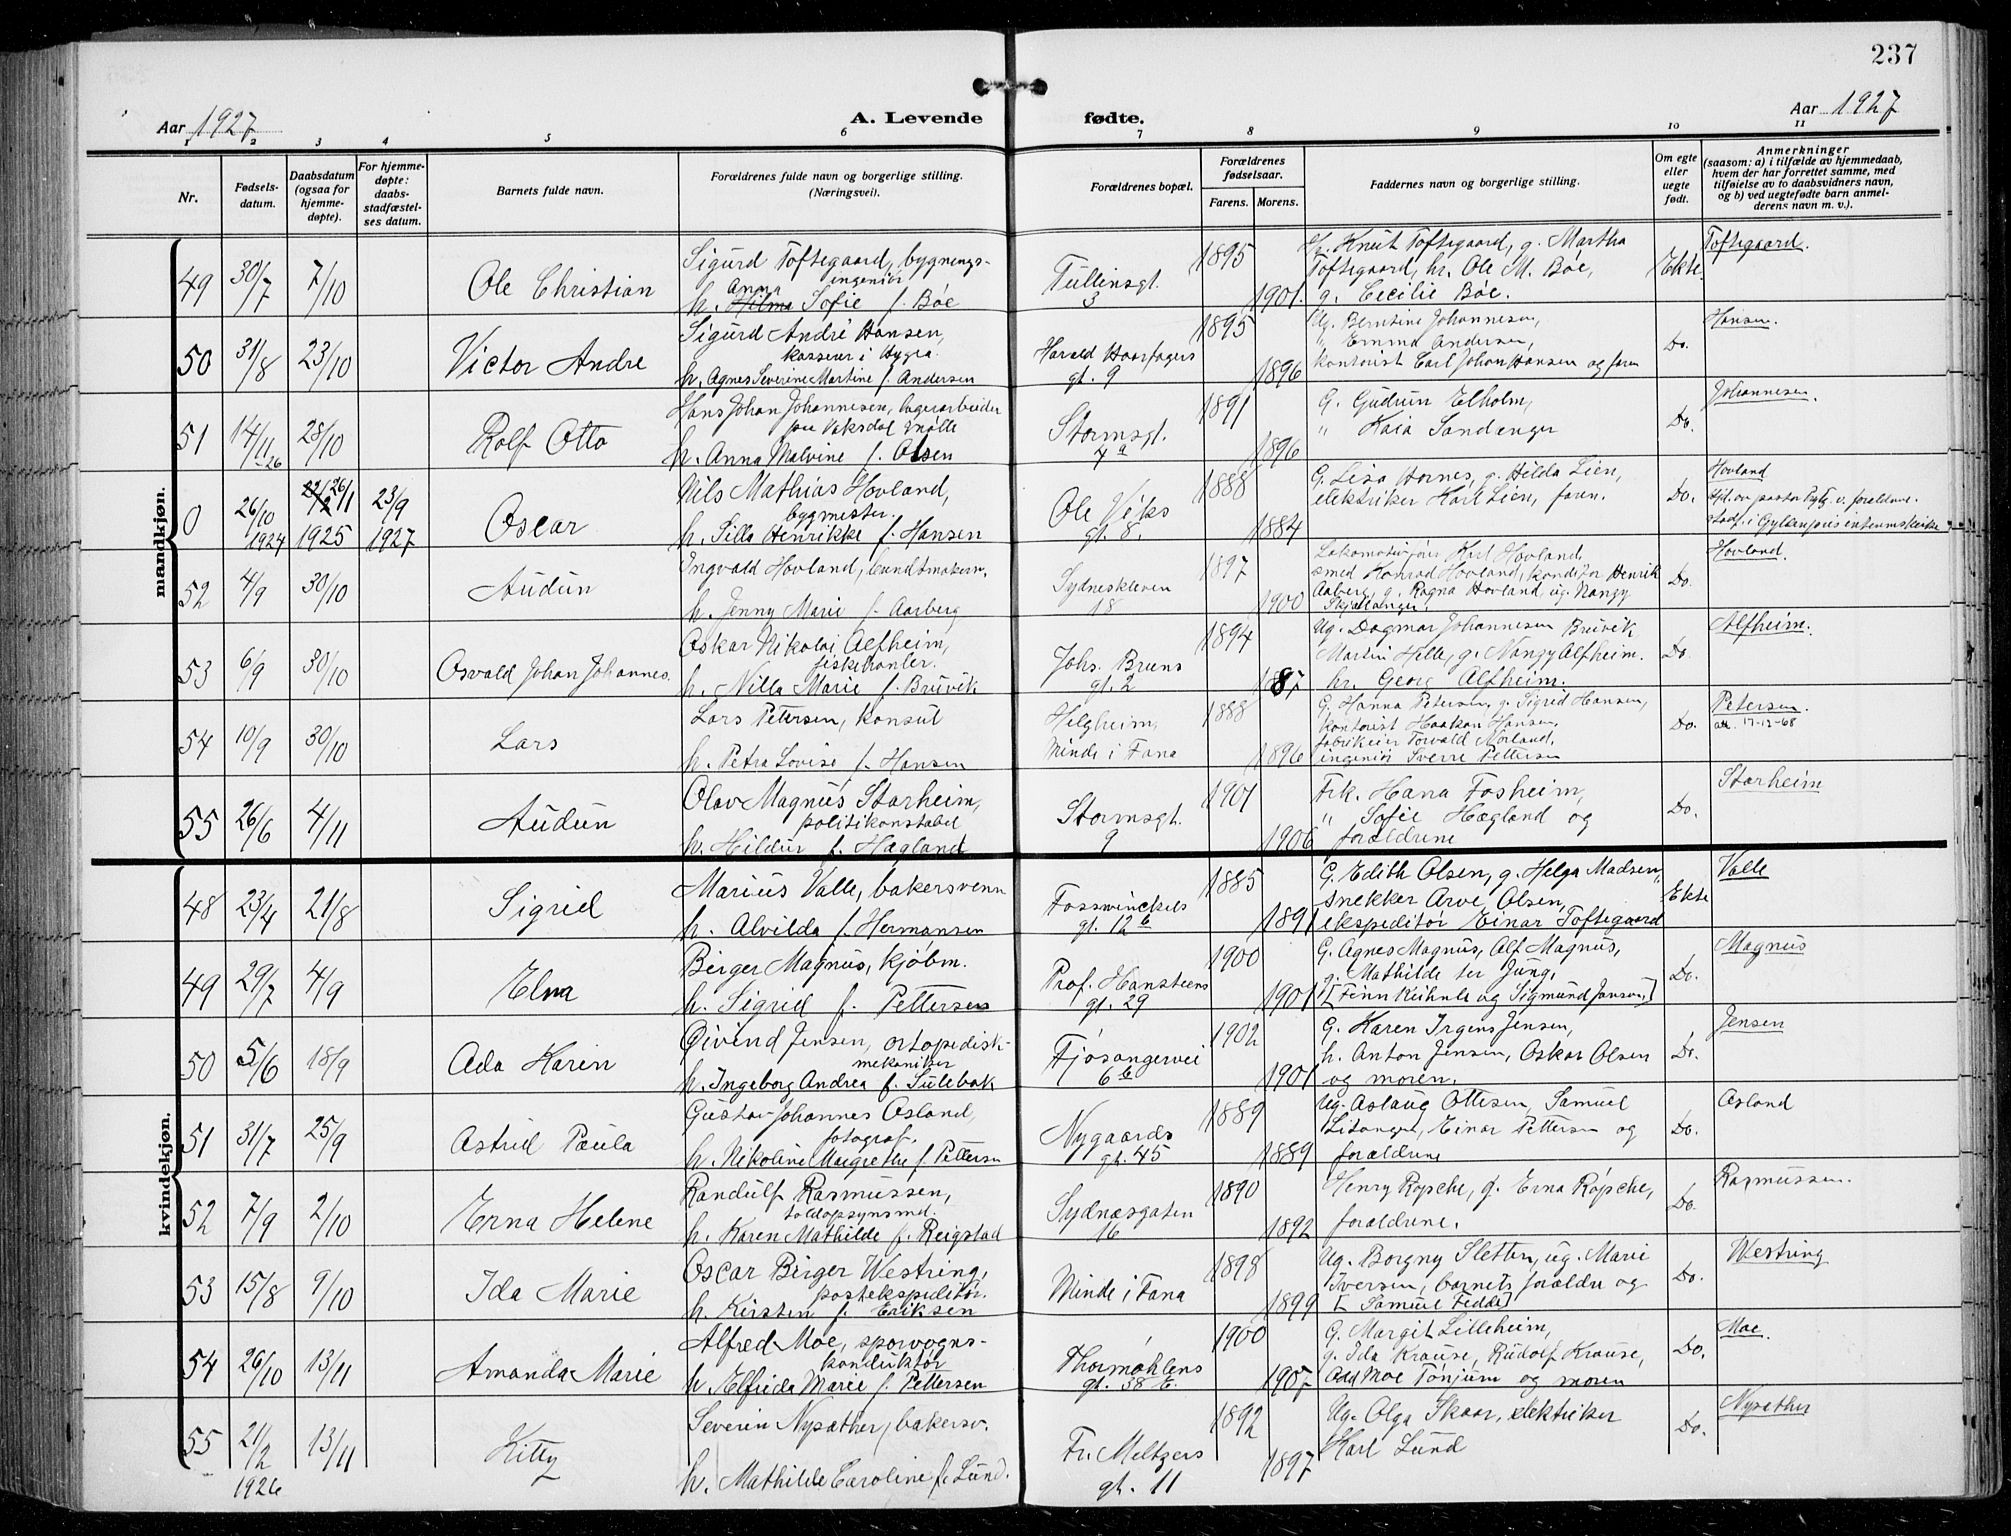 237
Aar 1927
A. Levende fødte.
Aar 1927
1 2 3 4 5 6 7 8 9 10 11
Nr.
Fødsels-
datum.
Daabsdatum
(ogsaa for
hjemme-
døpte).
For hjemme-
døpte:
daabs-
stadfæstel-
ses datum.
Barnets fulde navn.
Forældrenes fulde navn og borgerlige stilling.
(Næringsvei).
Forældrenes bopæl.
Forældrenes
fødselsaar.
Farens. Morens.
Faddernes navn og borgerlige stilling.
Om egte
eller
uegte
født.
Anmerkninger
(saasom: a) i tilfælde av hjemmedaab,
hvem der har forrettet samme, med
tilføielse av to daabsvidners navn,
og b) ved uegtefødte barn anmel-
derens navn m. v.).
mandkjøn.
49 30/7 7/10 Ole Christian
Sigurd Toftegaard, bygnings-
ingeniør
Anna
h. Hilma Sofie f. Bøe
Tullinsgt.
3
1895
1901.
Hr. Knut Toftegaard, g. Martha
Toftegaard, hr. Ole M. Bøe,
g. Cecilie Bøe.
Ekte
Toftegaard.
50 31/8 23/10 Victor Andre
Sigurd André Hansen,
kasserer i Hygea
h. Agnes Severine Martine f. Andersen
Harald Haarfagers
gt. 9
1895
1896
Ug. Berntine Johannesen,
" Emma Andersen,
kontorist Carl Johan Hansen og faren
Do.
Hansen.
51 14/11 26 28/10 Rolf Otto
Hans Johan Johannesen, lagerarbeider
paa Vaksdal mølle
h. Anna Malvine f. Olsen
Stormsgt.
4a
1891
1896
G. Gudrun Elholm,
" Kaia Sandanger
Do.
Johannesen.
0 26/10 1924 26/1 1925 23/9 1927 Oscar
Nils Mathias Hovland,
bygmester.
h. Silla Henrikke f. Hansen
Ole Viks
gt. 8.
1888
1884
G. Lisa Hornes, g. Hilda Lien,
elektriker Karl Lien, faren.
Do.
Hovland
52 4/9 30/10 Audun
Ingvald Hovland, buntmakerm.
h. Jenny Marie f. Aarberg
Sydneskleven
18
1897
1900
Lokomotivfører Karl Hovland,
smed Konrad Hovland, konditor Henrik
Aaberg, g. Ragna Hovland, ug. Nangy
Skjellanger.
Do.
Hovland.
53 6/9 30/10 Osvald Johan Johannes.
Oskar Nikolai Alfheim,
fiskehanler.
h. Nilla Marie f. Bruvik
Johs. Bruns
gt. 2
1894
1887
Ug. Dagmar Johannesen Bruvik
Martin Helle, g. Nangy Alfheim.
hr. Georg Alfheim.
Do.
Alfheim.
54 10/9 30/10 Lars
Lars Petersen, konsul
h. Petra Lovise f. Hansen
Helgheim,
Minde i Fana
1888
1896
G. Hanna Petersen, g. Sigrid Hansen,
kontorist Haakon Hansen,
fabrikeier Torvald Mørland,
ingeniør Sverre Pettersen
Do.
Petersen.
att. 17-12-68
55 26/6 4/11 Audun
Olav Magnus Starheim,
politikonstabel
h. Hildur f. Hægland
Stormsgt.
9
1901
1906
Frk. Hana Fosheim,
" Sofie Hægland og
forældrene
Do.
Starheim
kvindekjøn.
48 23/4 21/8 Sigrid
Marius Valle, bakersvenn
h. Alvilda f. Hermansen
Fosswinckels
gt. 12b
1885
1891
G. Edith Olsen, g. Helga Madsen,
snekker Arve Olsen,
ekspeditør Einar Toftegaard
Ekte
Valle
49 29/7 4/9 Elna
Birger Magnus, kjøbm.
h. Sigrid f. Pettersen
Prof. Hansteens
gt. 29
1900
1901
G. Agnes Magnus, Alf Magnus,
g. Mathilde ter Jung,
[Finn Kühnle og Sigmund Janson,]
Do.
Magnus
50 5/6 18/9 Ada Karin
Øivind Jensen, ortopedisk-
mekaniker
h. Ingeborg Andrea f. Sulebak
Fjøsangervei
6b
1902
1901
G. Karen Irgens Jensen,
h. Anton Jensen, Oskar Olsen
og moren.
Do.
Jensen
51 31/7 25/9 Astrid Paula
Gustav Johannes Osland,
fotograf.
h. Nikoline Margrethe f. Pettersen
Nygaards
gt. 45
1889
1889
Ug. Aslaug Ottesen, Samuel
Einar Pettersen og
forældrene
Do.
Osland
52 7/9 2/10 Erna Helene
Randulf Rasmussen,
toldopsynsmd.
h. Karen Mathilde f. Reigstad
Sydnæsgaten
16
1890
1892
Henry Røpche, g. Erna Røpche,
forældrene.
Do.
Rasmussen.
53 15/8 9/10 Ida Marie
Oscar Birger Westring,
postekspeditør.
h. Kirsten f. Eriksen
Minde i Fana
1898
1899
Ug. Borgny Sletten, ug. Marie
Iversen, barnets forældre og
[Samuel Fedde]
Do.
Westring
54 26/10 13/11 Amanda Marie
Alfred Moe, sporvogns-
konduktør
h. Elfrida Marie f. Pettersen
Thormøhlens
gt. 38 E.
1900
1907
G. Margit Lilleheim,
g. Ida Krause, Rudolf Krause,
Odd Moe Tønjum og moren
Do.
Moe.
55 21/2 1926 13/11 Kitty
Severin Nysæther, bakersv.
h. Mathilde Caroline f. Lund.
Fr. Meltzers
gt. 11
1892
1897
Ug. Olga Skaar, elektriker
Karl Lund
Do.
Nysæther